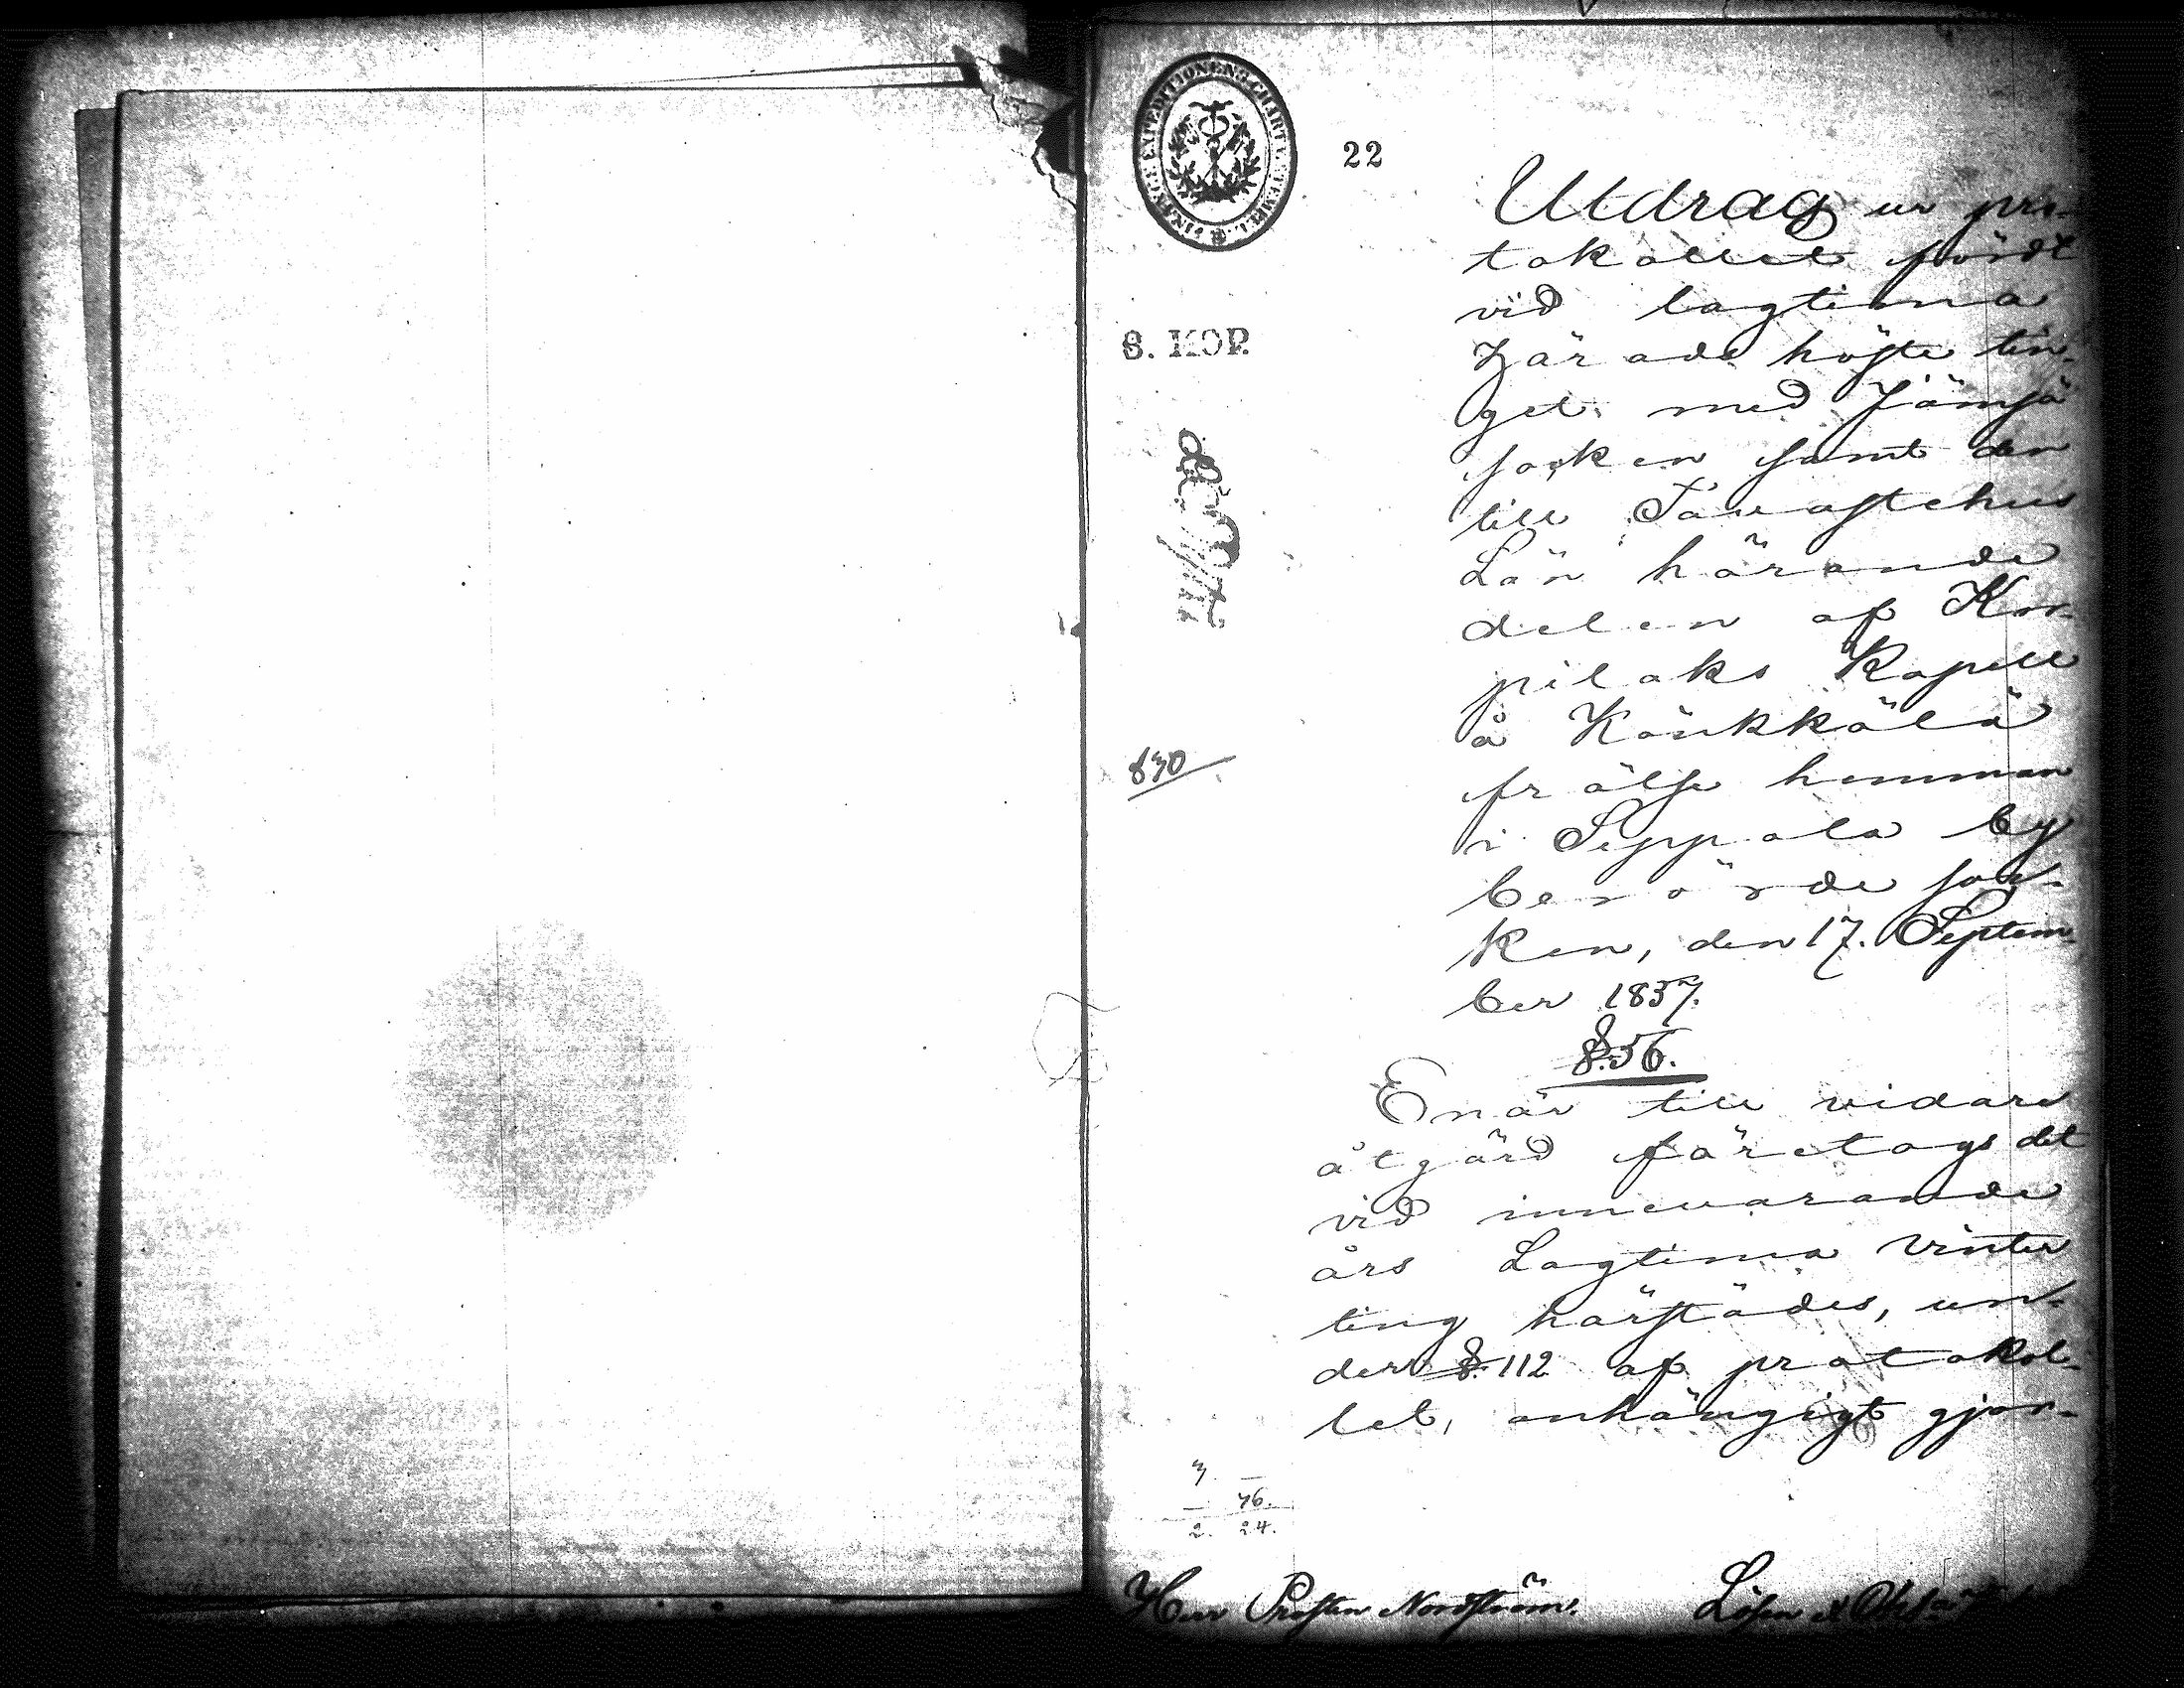 22
Utdrag ur pro-
tokollet fördt
vid lagtima
Härads höste tin-
get med Jämsä
socken samt den
till Tavastehus
Län hörande
delen af Kor-
pilaks Kapell
å Könkkölä
frälse hemman
i Seppola by
berörde soc-
ken, den 17. Septem-
ber 1857.
§. 56.
Enär till vidare
åtgärd företogs det
vid innevarande
års Lagtima vinter
ting härstädes, un-
der §. 112 af protokol-
let, anhängigt gjor-
8. KOP.
830
3. —
— 76.
2. 24.
Herr Prosten Nordström.
Lösen